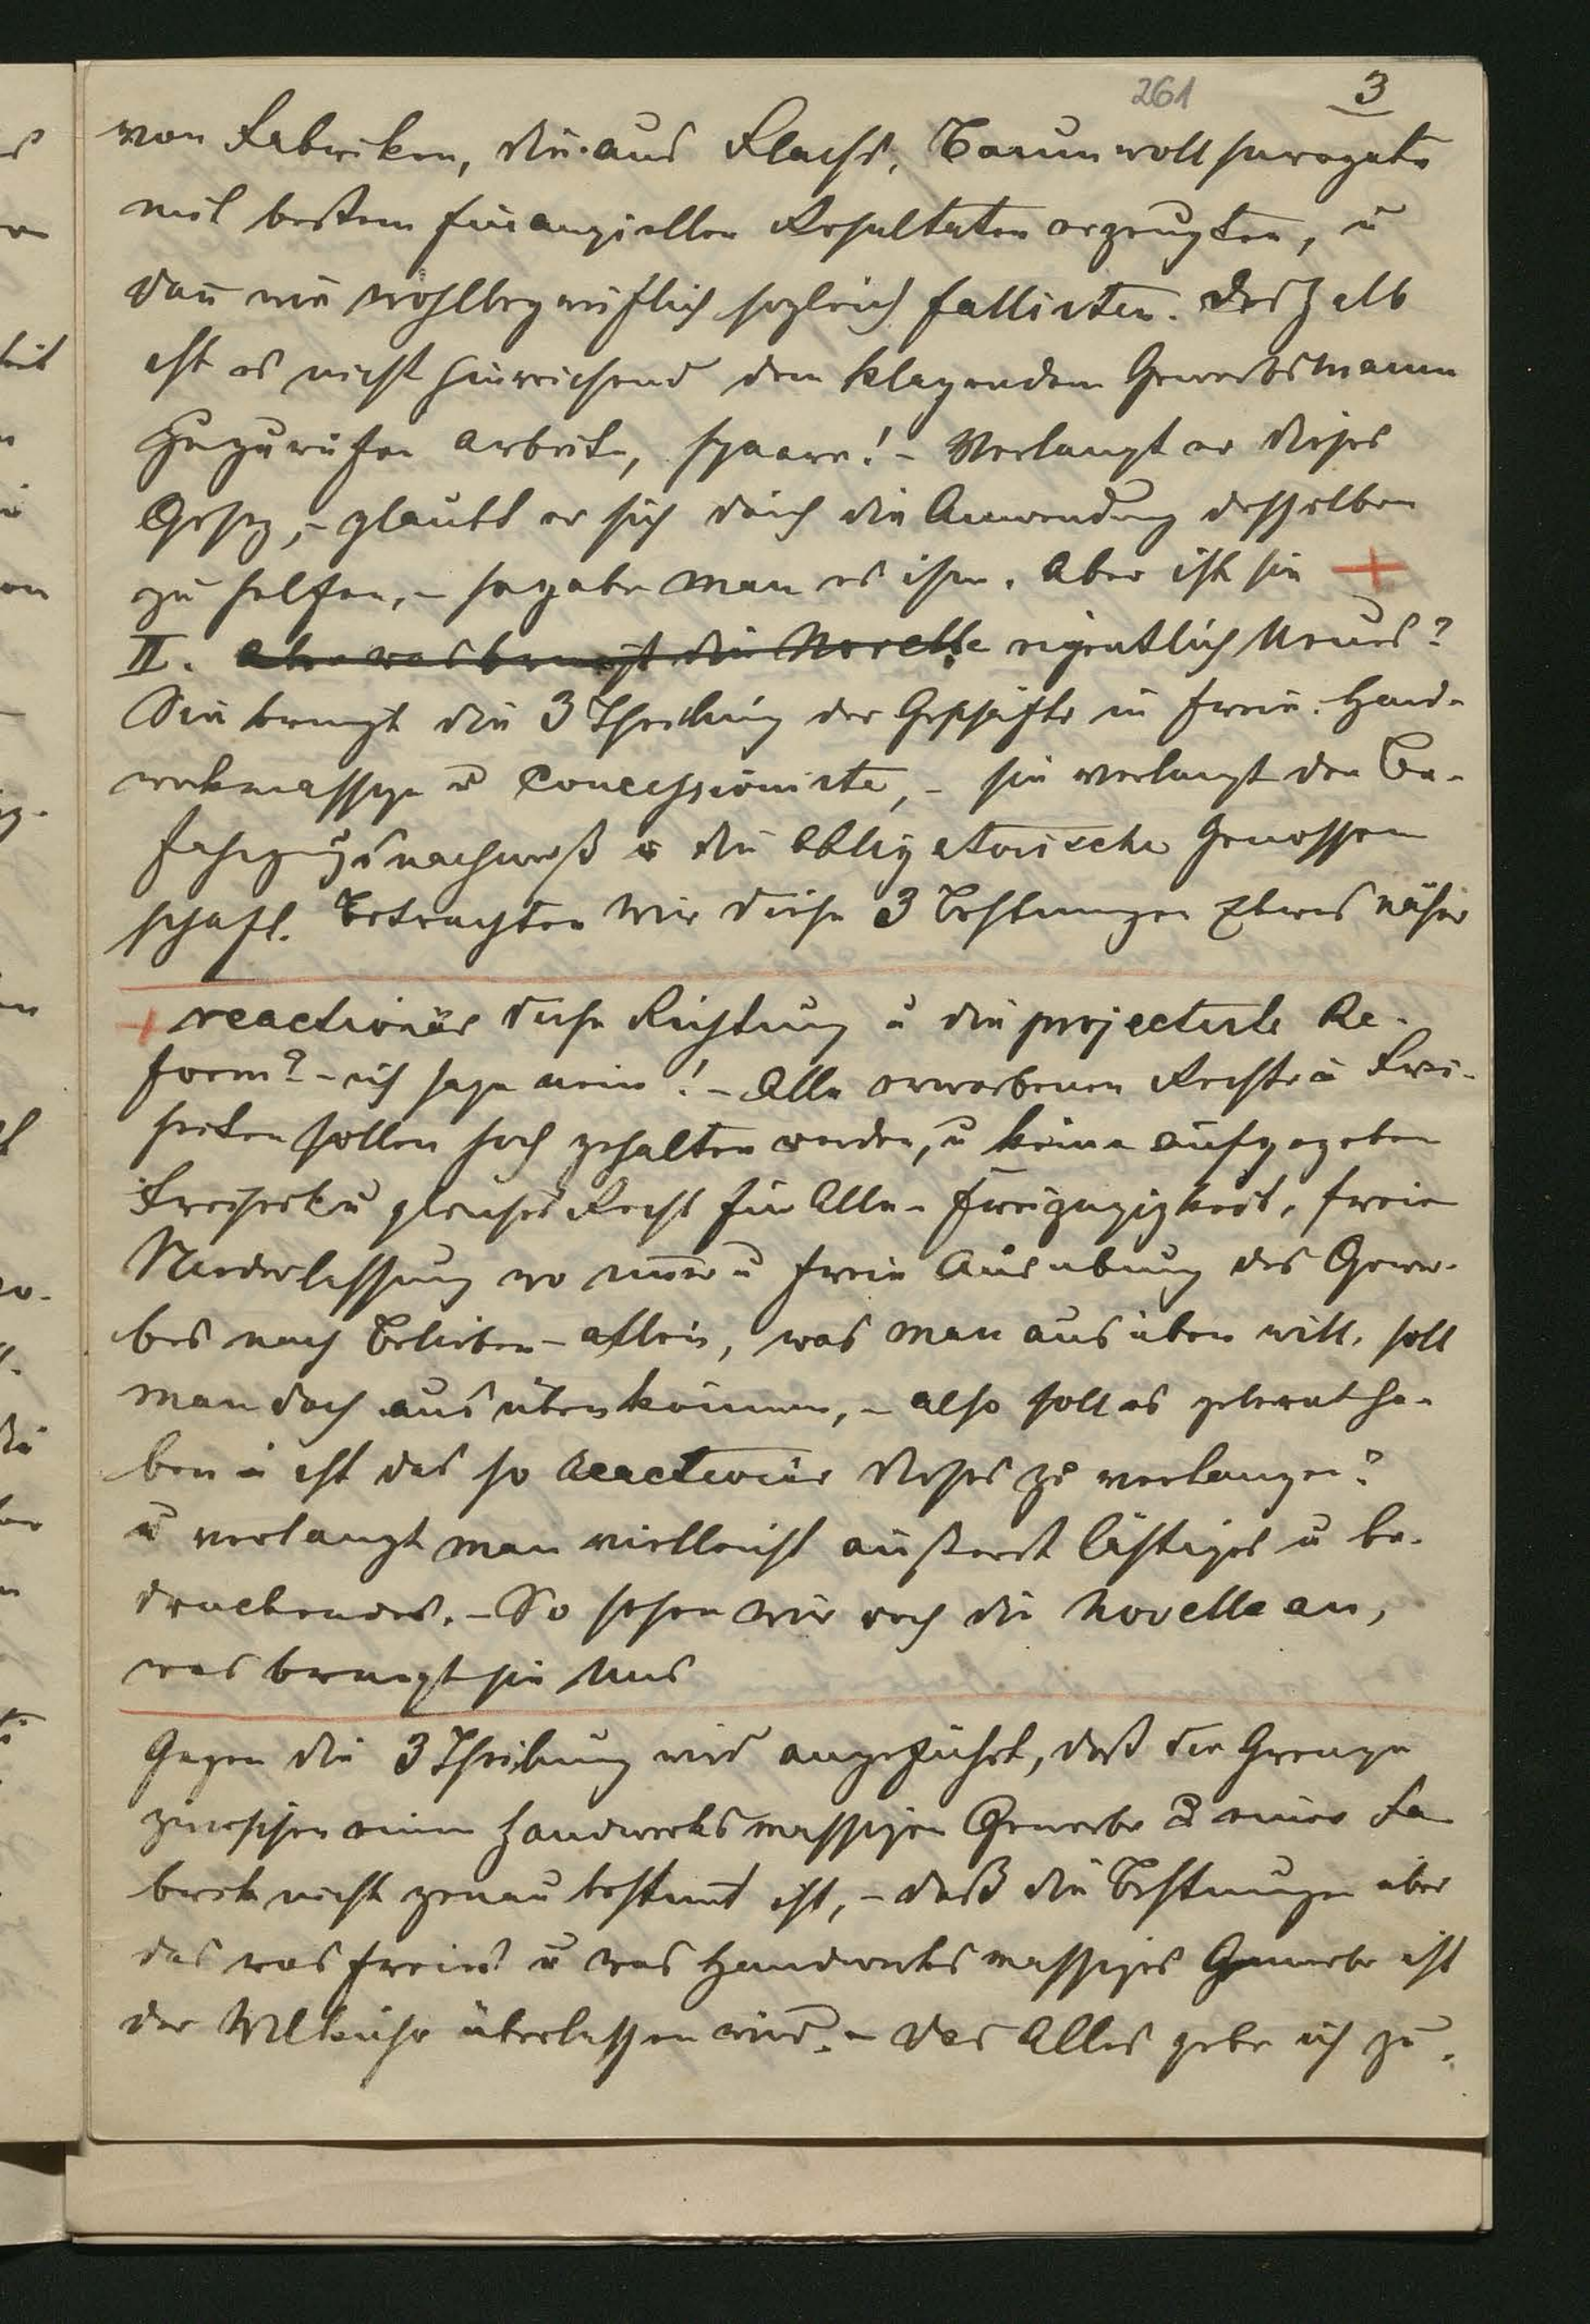 261 3
von Fabriken, die aus Flachs, Baumwollsurogate
mit bestem finanziellen Resultaten erzeugten, u
dan wie wohlbegreiflich sogleich fallirten. Deshalb
ist es nicht hinreichend dem klagenden Gewerbsmann
zuzurufen arbeite, spaare! - Verlangt er dieses
Gesez, - glaubt er sich durch die Anwendung desselben
zu helfen, - so gebe man es ihm. Aber ist sie +
II. Aber was bringt die Novelle eigentlich Neues?
Sie bringt die 3 Theilung der Geschäfte in freie, Hand-
werkmassige u Concessionirte, - sie verlangt den Be-
fahigungsnachweiß u die obligatorische Genossen
schaft. Betrachten wir diese 3 Bestimungen Etwas näher
+ reactionär diese Richtung u die projectirte Re-
form? - ich sage nein! - Alle erworbenen Rechte u Frei-
heiten sollen hoch gehalten werden, u keine aufgegeben
Freiheit u gleiches Recht für Alle - Freizugigkeit, freie
Niederlassung wo immer u freie Ausubung des Gewer-
bes nach Belieben - allein, was man ausüben will, soll
man doch ausüben können, - also soll es gelernt ha-
ben u ist das so reactionär dieses zu verlangen?
u verlangt man vielleicht äußerst lästiges u be-
druckendes. - So sehen wir noch die Novelle an,
was bringt sie Neues
Gegen die 3 Theilung wird angeführt, daß die Grenze
zwischen einem handwerksmassigen Gewerbe & einer Fa
brik nicht genau bestimt ist, - daß die Bestimungen über
das was freies u was Handwerksmassiges Gewerbe ist
der Willkühr überlassen wird. - das Alles gebe ich zu.